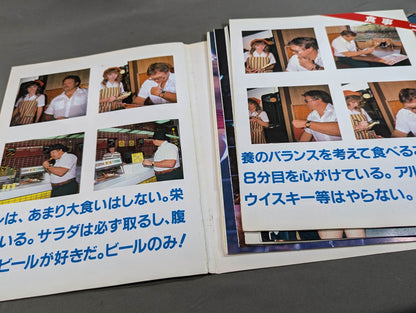 食事
ンは、あまり大食いはしない。栄
いる。サラダは必ず取るし、腹
ビールが好きだ。ビールのみ！
養のバランスを考えて食べる
8分目を心がけている。アル
ウイスキー等はやらない。